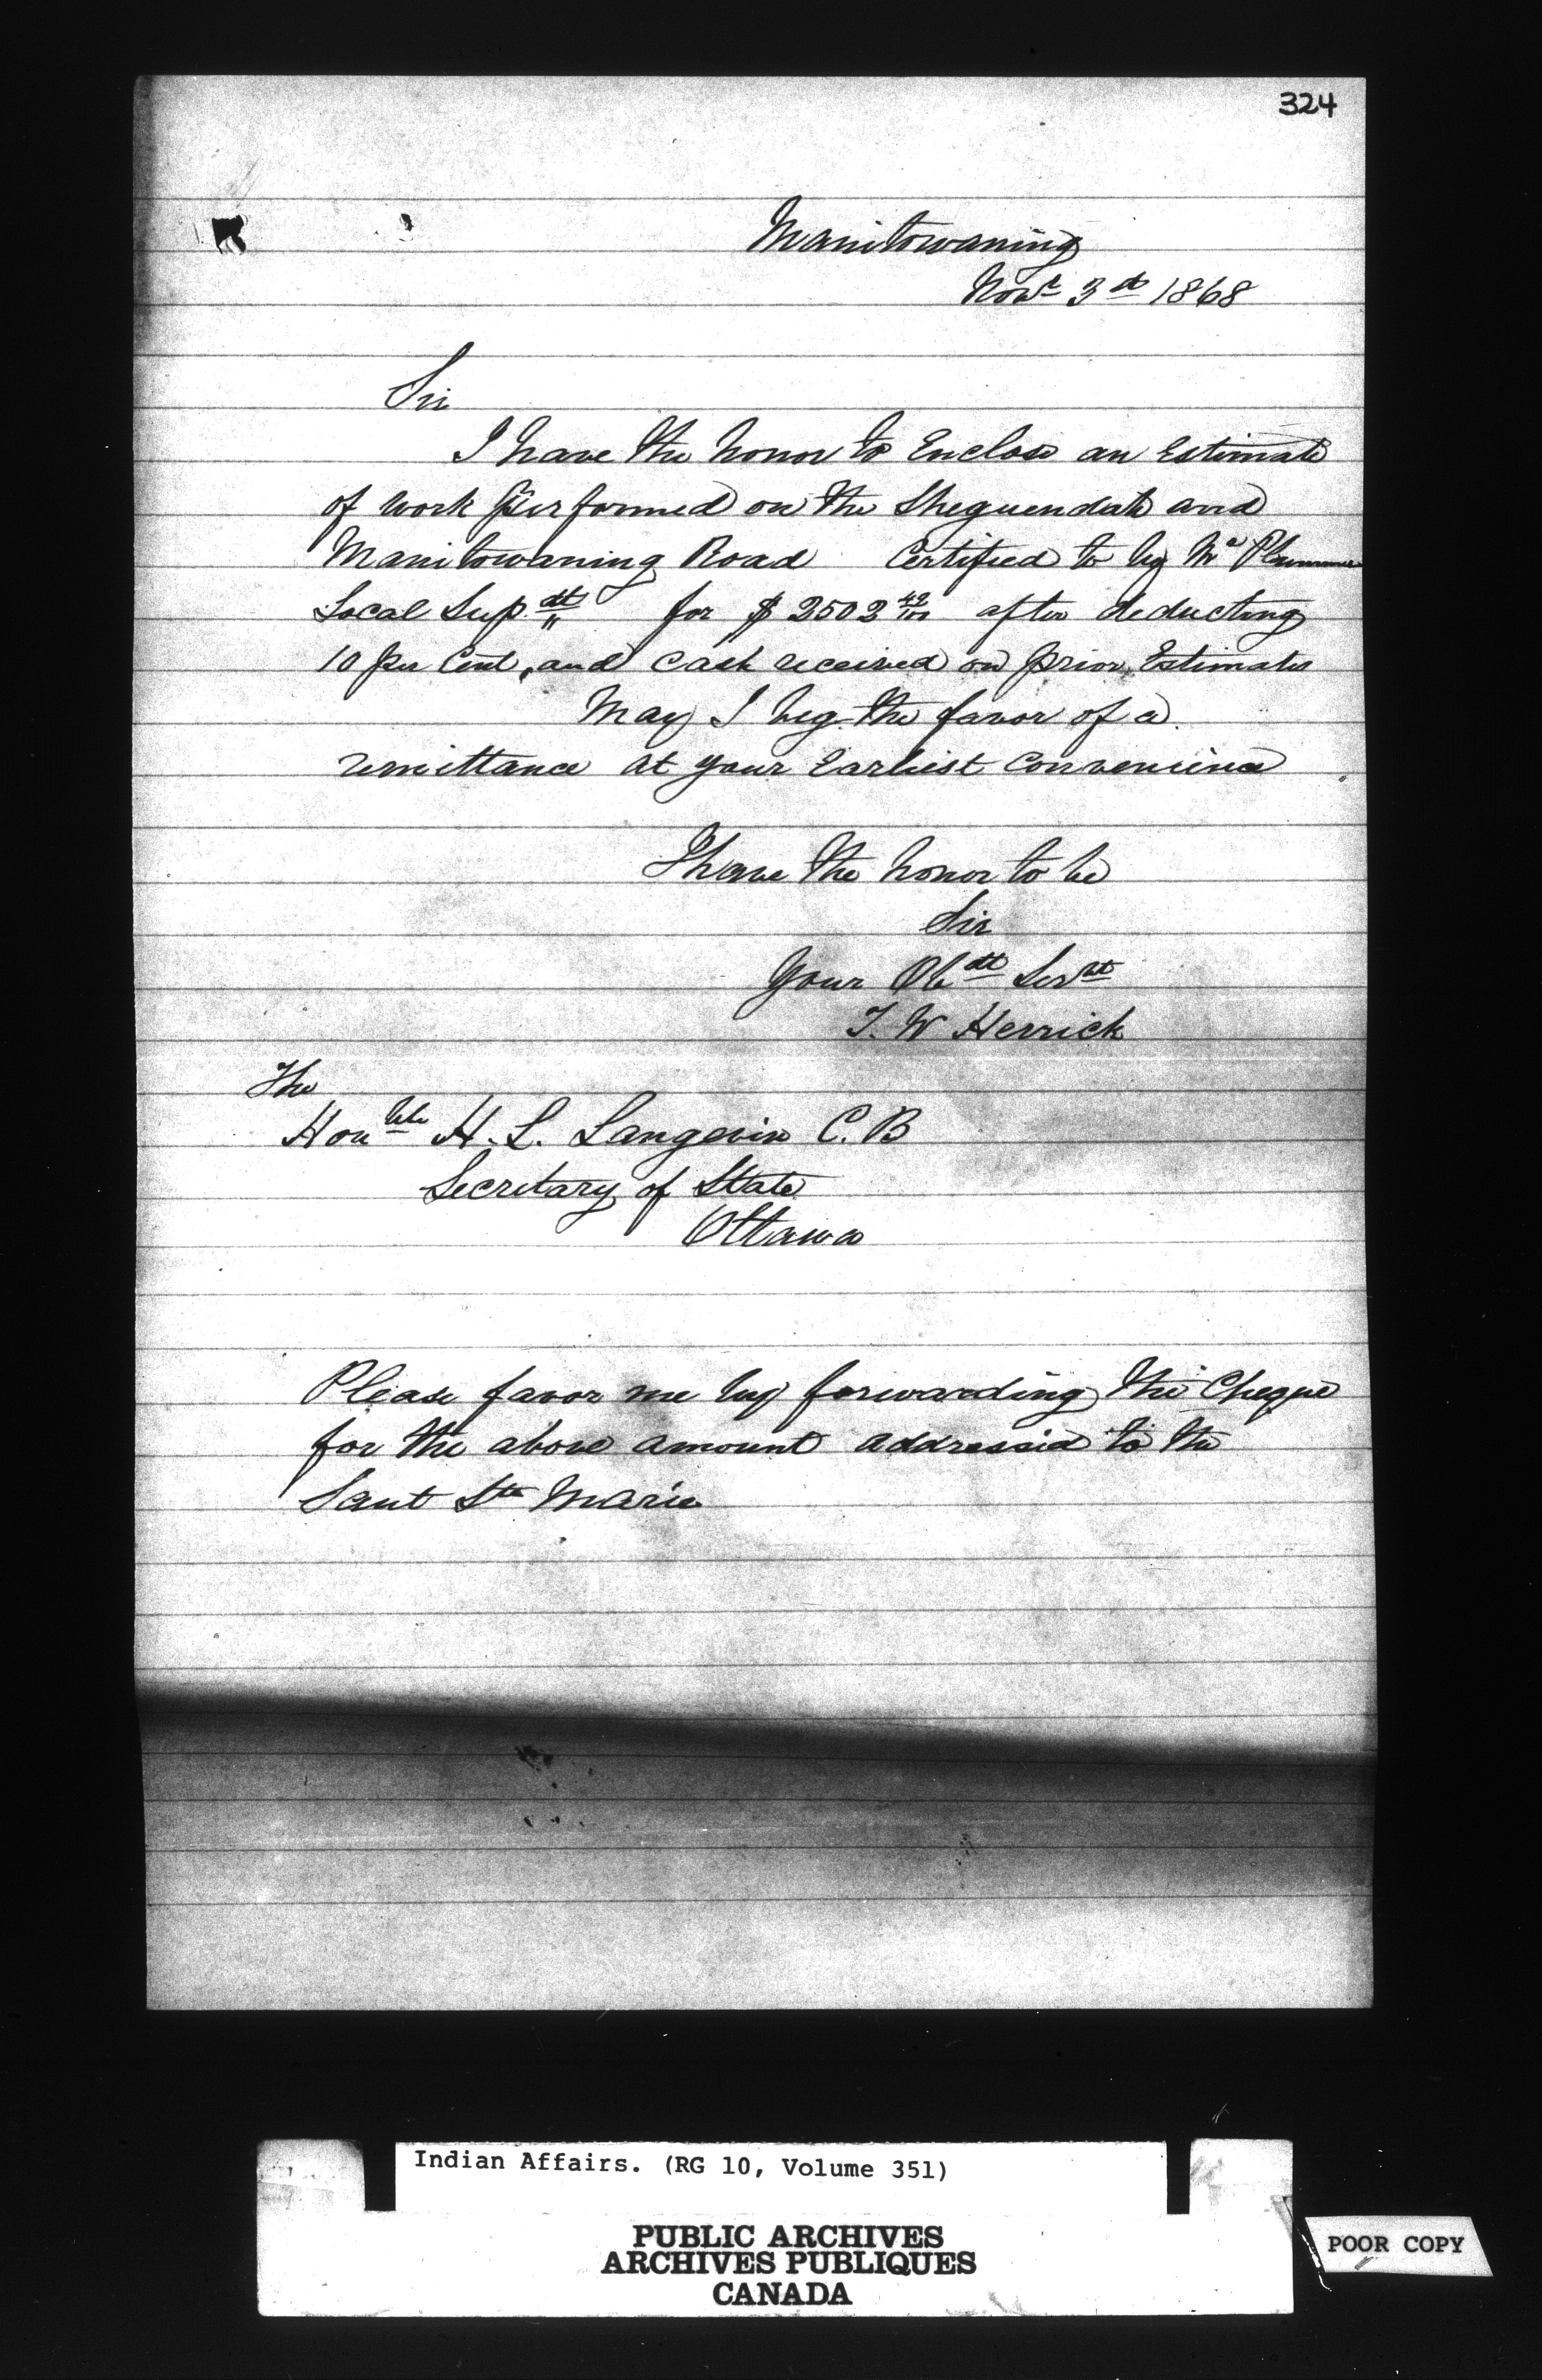 324
Manitowaning
Novr 3d 1868
Sir
I have the honor to Enclose an Estimate
of work performed on the Sheguendah and
Manitowaning Road Certified to by Mr Plummer
Local Supdt for $ 2502 42/100 after deducting
10 per Cent, and Cash received on prior Estimates
May I beg the favor of a
remittance at your Earliest Convenience
I have the honor to be
Sir
Your Obdt Servt
T. W Herrick
The
Honble H. L. Langevin C. B
Secretary of State
Ottawa
Please favor me by forwarding the Cheque
for the above amount addressed to the
Saut Ste Marie
Indian Affairs. (RG 10, Volume 351)
PUBLIC ARCHIVES
ARCHIVES PUBLIQUES
CANADA
POOR COPY